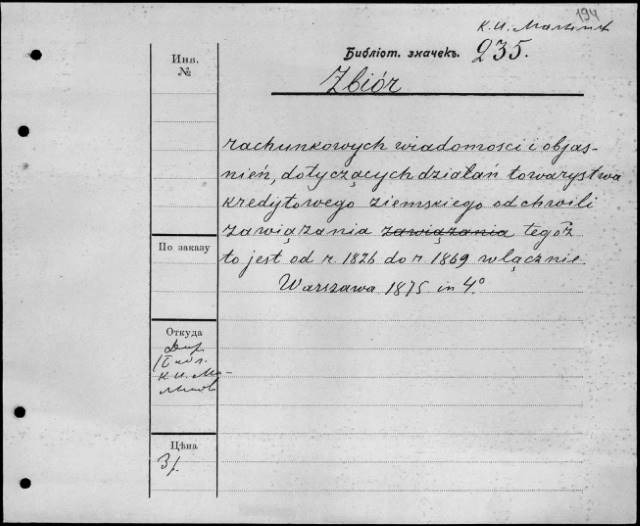 194
К. И.
Инв.
№
Библіот. значекъ.
235.
Zbiór
rachunkowych wiadomosci i objas-
nień, dotyczących działań towarystwa
kredytowego ziemskiego od chwili
zawiązania zawiązania tegóż
to jest od r. 1826 do r. 1869 włącznie.
Warszawa 1875 in 4.º
По заказу
Откуда
К. И. Ма-
Цѣна
3 р.